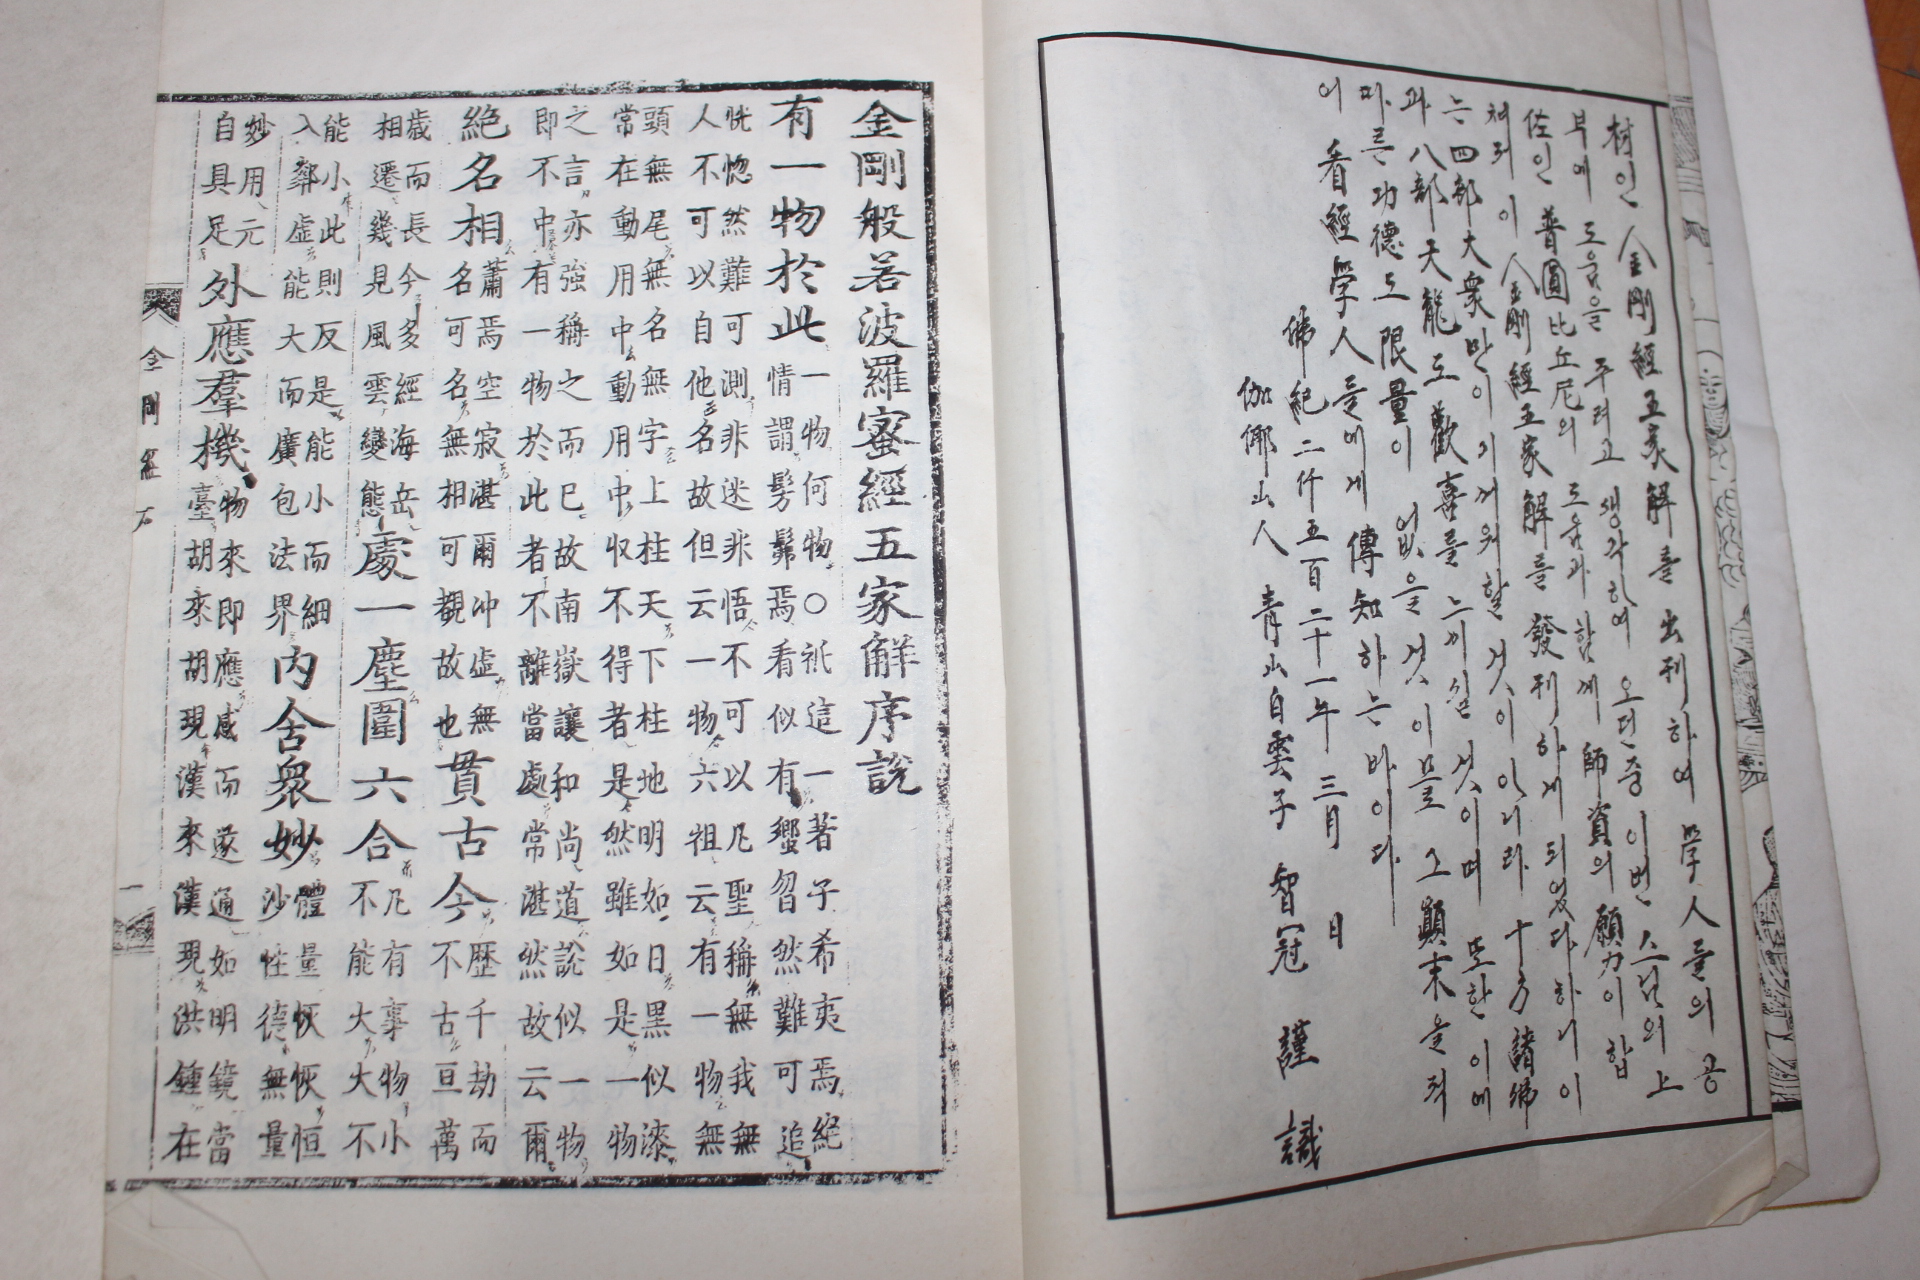 材인 金剛經五家解를 出刊하여 學人들의 공
부에 도움을 주려고 생각하여 오던중 이번 스님의 上
佐인 普圓比丘尼의 도움과 함께 師資의 願力이 합
쳐저 이 金剛經五家解를 發刊하게 되었다하니 이
는 四部大衆만이 기꺼워할 것이 아니라 十方諸佛
과 八部天龍도 歡喜를 느끼실 것이며 또한 이에
따른 功德도 限量이 없을 것이므로 그 顚末을 적
어 看經學人들에게 傳知하는 바이다
佛紀二仟五百二十一年 三月 日
伽倻山人 靑山自雲子 智冠 謹識
金剛般若波羅蜜經五家解序說
有一物於此 一物何物○祇這一著子希夷焉絕
情謂髣髴焉看似有蠁曶然難可追
恍惚然難可測非迷非悟不可以凡聖稱無我無
人不可以自他名故但云一物六祖云有一物無
頭無尾無名無字上柱天下柱地明如日黑似漆
常在動用中動用中収不得者是然雖如是一物
之言亦強稱之而已故南嶽讓和尚道說似一物
即不中有一物於此者不離當處常湛然故云爾
絶名相 蕭焉空寂湛爾冲虛無
名可名無相可覩故也 貫古今 歷千劫而
不古亘萬
歲而長今多經海岳
相遷幾見風雲變態 處一塵圍六合 凡有事物小
不能大大不
能小此則反是能小而細
入鄰虛能大而廣包法界 內含衆妙 體量恢恢恒
沙性德無量
妙用元
自具足 外應羣機 物來即應感而遂通如明鏡當
臺胡來胡現漢來漢現洪鍾在
金剛經 一